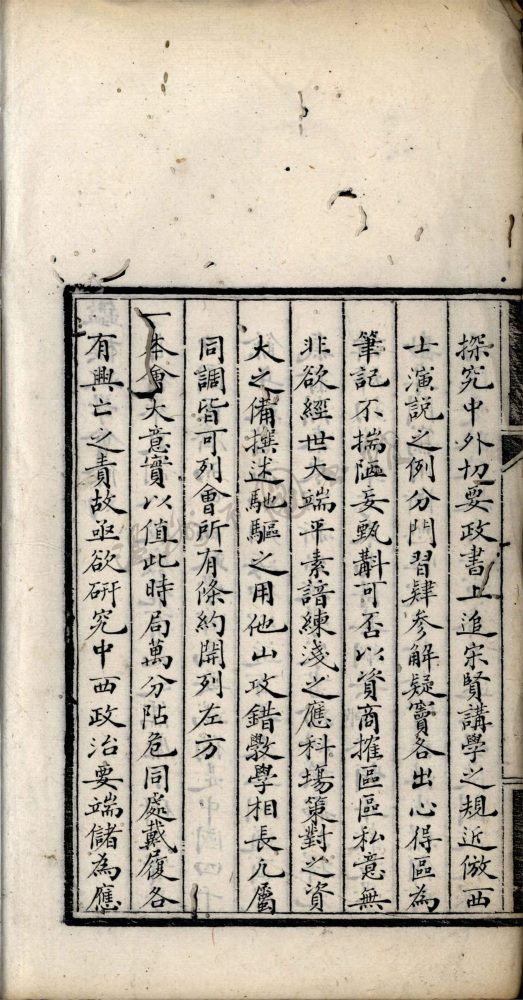 探究中外切要政書上追宋賢講學之規近倣西
士演說之例分門習肄參解疑竇各出心得區為
筆記不揣陋妄甄斠可否以資商搉區區私意無
非欲經世大端平素諳練淺之應科塲策對之資
大之備撰述馳驅之用他山攻錯斅學相長凡屬
同調皆可列會所有條約開列左方
一本會大意實以值此時局萬分阽危同處戴履各
有興亡之責故亟欲研究中西政治要端儲為應